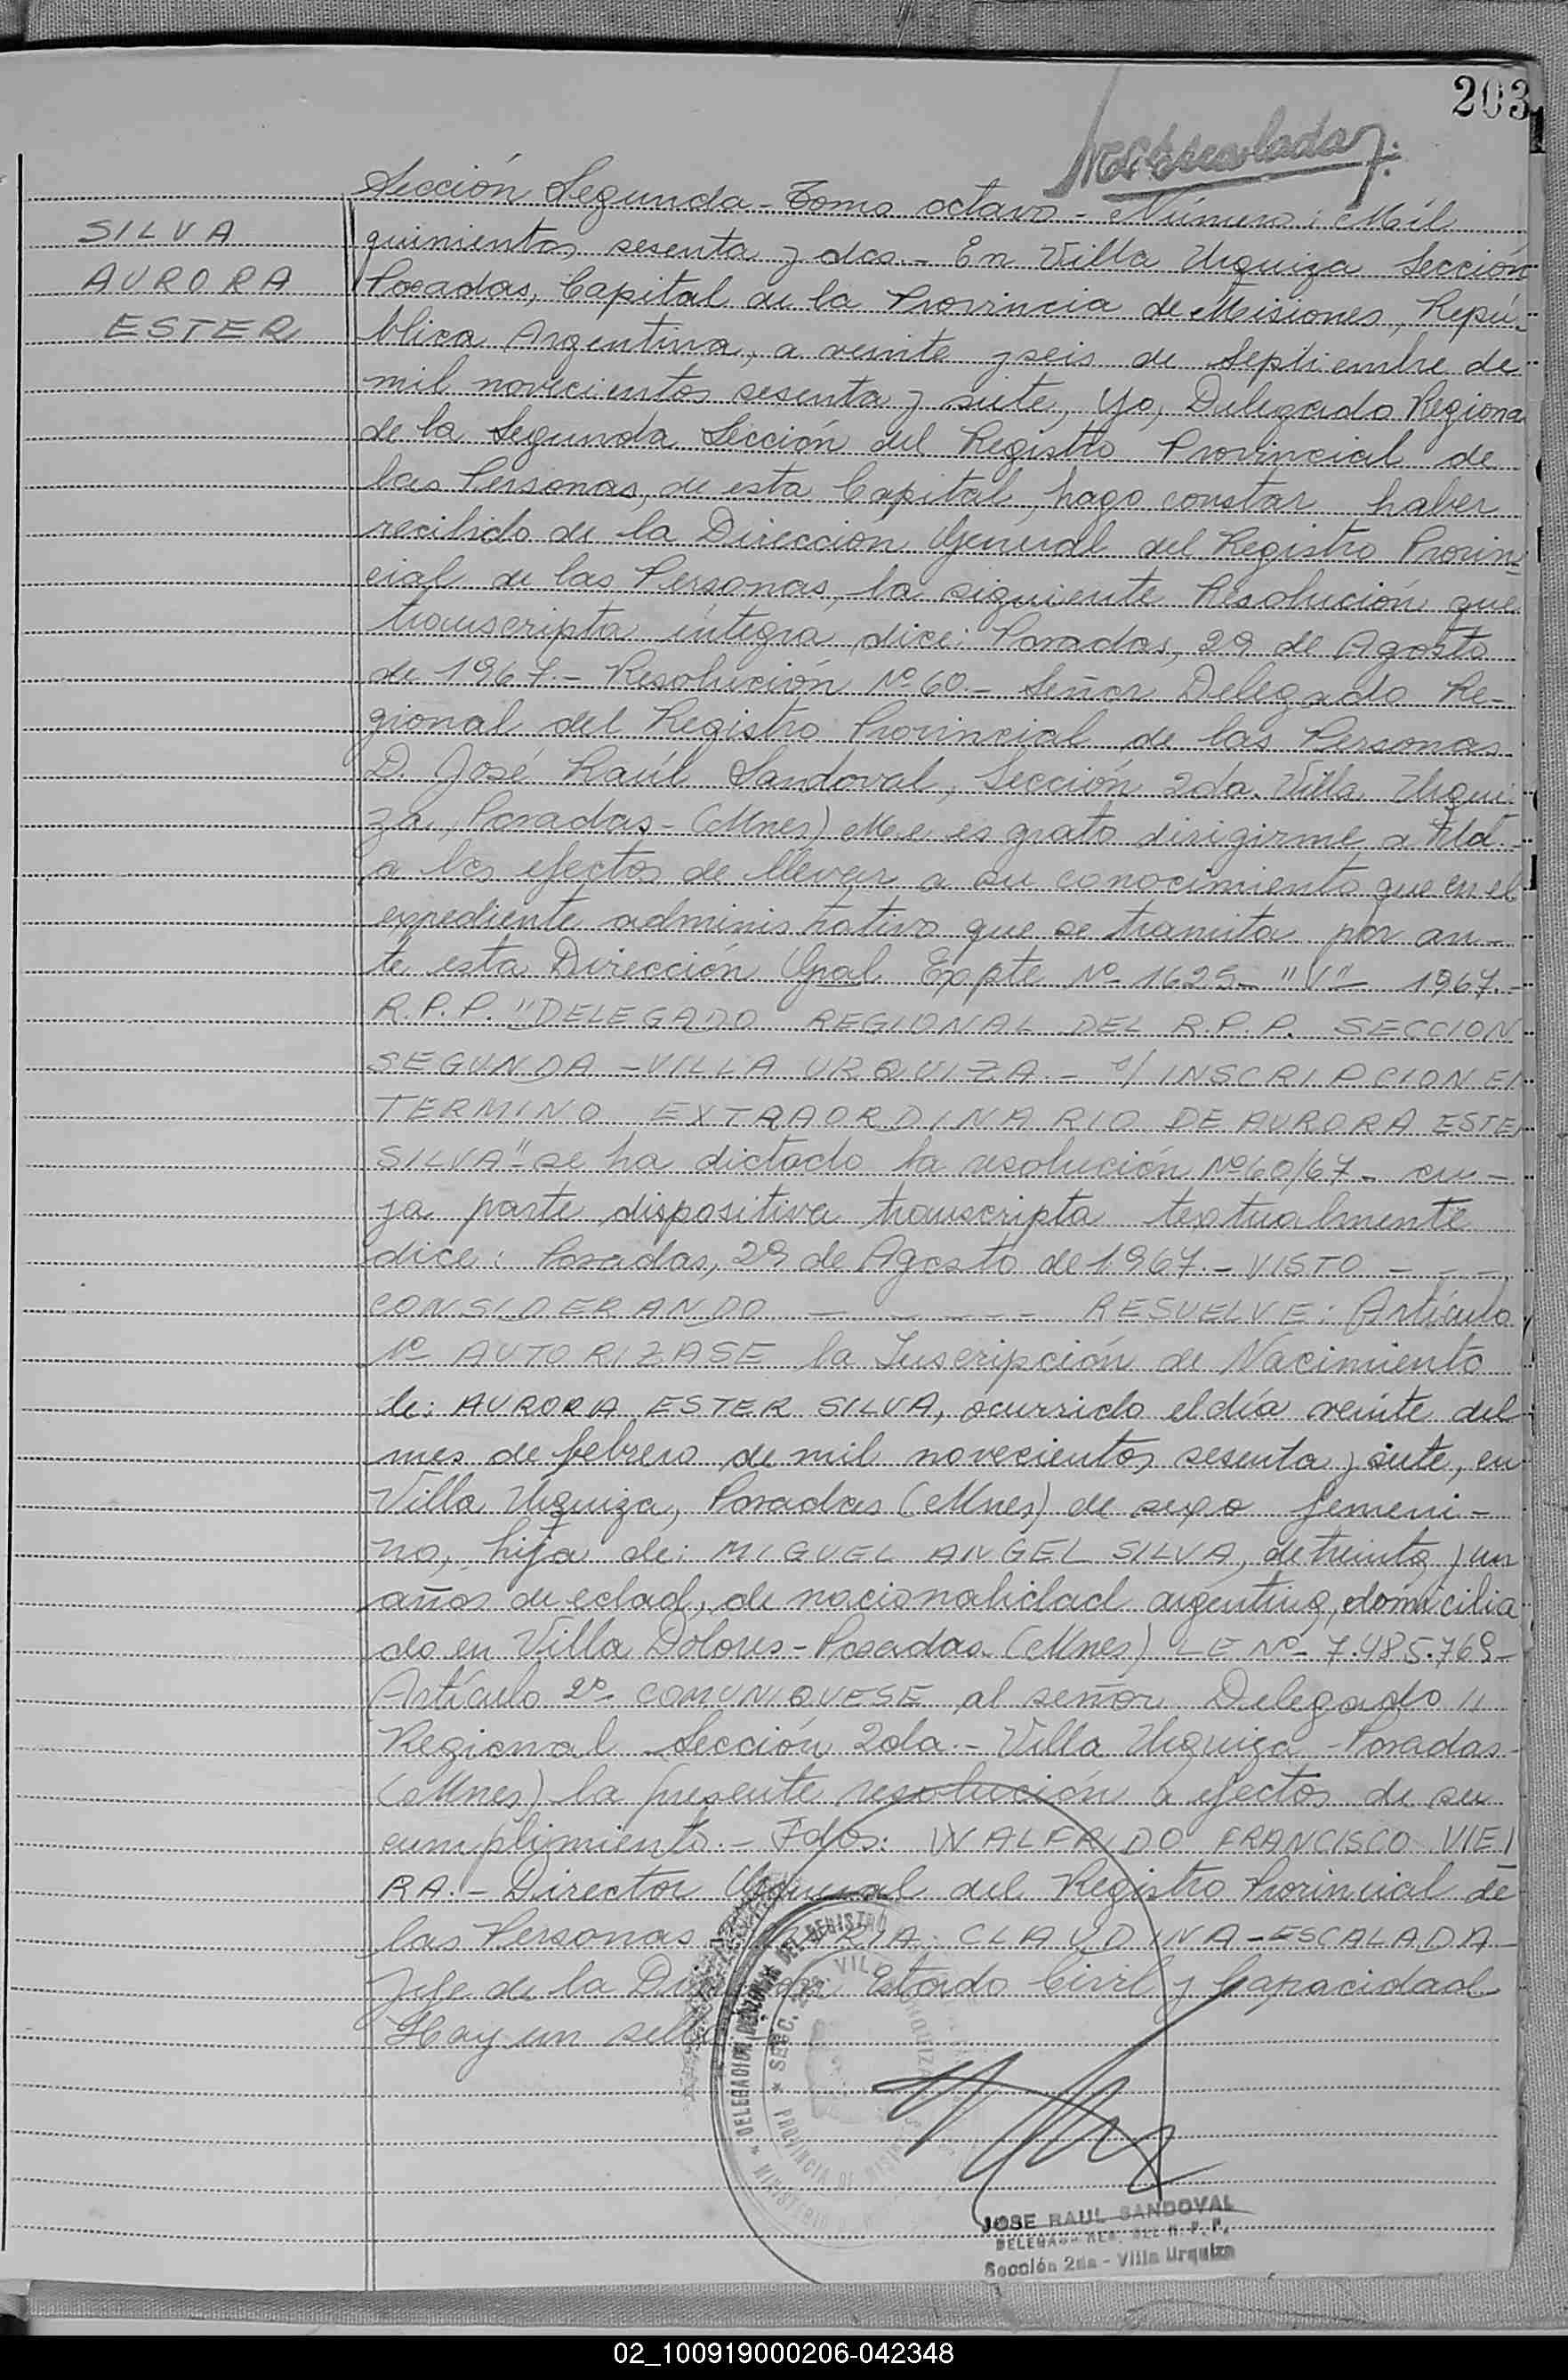 203
Sección Segunda - Tomo octavo - Número: Mil
SILVA
AURORA
ESTER
quinientos sesenta y dos.- En Villa Urquiza Sección
Posadas, Capital de la Provincia de Misiones, Repú-
blica Argentina, a veinte y seis de Septiembre de
mil novecientos sesenta y siete, Yo, Delegado Regional
de la Segunda Sección del Registro Provincial de
las Personas, de esta Capital, hago constar haber
recibido de la Dirección General del Registro Provin-
cial de las Personas, la siguiente Resolución que
transcripta íntegra dice: Posadas, 29 de Agosto
de 1967.- Resolución Nº 60.- Señor Delegado Re-
gional del Registro Provincial de las Personas
D. José Raúl Sandoval, Sección 2da. Villa Urqui-
za, Posadas - (Mnes) Me es grato dirigirme a Ud.
a los efectos de llevar a su conocimiento que en el
expediente administrativo que se tramita por an-
te esta Dirección Gral. Expte Nº 1625- "V" 1967.-
R.P.P. "DELEGADO REGIONAL DEL R.P.P. SECCION
SEGUNDA - VILLA URQUIZA - s/ INSCRIPCION EN
TERMINO EXTRAORDINARIO DE AURORA ESTER
SILVA" - se ha dictado la resolución Nº 60/67 - cu-
ya parte dispositiva transcripta textualmente
dice: Posadas, 29 de Agosto de 1967.- VISTO - - -
CONSIDERANDO - - - - - RESUELVE: Artículo
1º AUTORIZASE la Inscripción de Nacimiento
de: AURORA ESTER SILVA, ocurrido el día veinte del
mes de febrero de mil novecientos sesenta y siete, en
Villa Urquiza, Posadas (Mnes) de sexo femeni-
no, hija de: MIGUEL ANGEL SILVA, de treinta y un
años de edad, de nacionalidad argentina, domicilia-
do en Villa Dolores - Posadas (Mnes) LE Nº 7.485.769-
Artículo 2º- COMUNIQUESE al señor Delegado //
Regional Sección 2da.- Villa Urquiza - Posadas -
(Mnes) la presente resolución a efectos de su
cumplimiento.- Fdos: WALFRIDO FRANCISCO VIEI
RA.- Director General del Registro Provincial de
las Personas MARIA CLAUDINA - ESCALADA
Jefe de la División Estado Civil y Capacidad
Hay un sello
DELEGACION REGIONAL DEL REGISTRO
SECC. 2da. VILLA URQUIZA
PROVINCIA DE MISIONES
MINISTERIO
JOSE RAUL SANDOVAL
DELEGADO REG. DEL R. P. P.
Sección 2da - Villa Urquiza
02_100919000206-042348